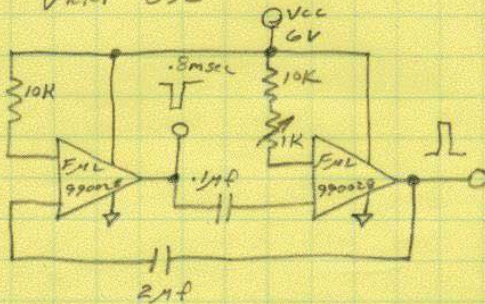 VCC
6V
.8msec
10K
10K
1K
FML
990028
.1μf
FML
990028
2μf